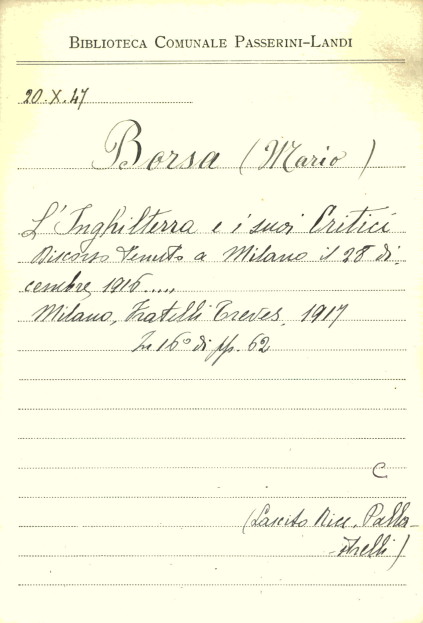 BIBLIOTECA COMUNALE PASSERINI-LANDI
20.X.47
Borsa (Mario)
L'Inghilterra e i suoi Critici
Discorso tenuto a Milano il 28 di-
cembre 1916.....
Milano, Fratelli Treves, 1917
In 16° di pp. 62
C
(Lascito Ricc. Palla-
-strelli)